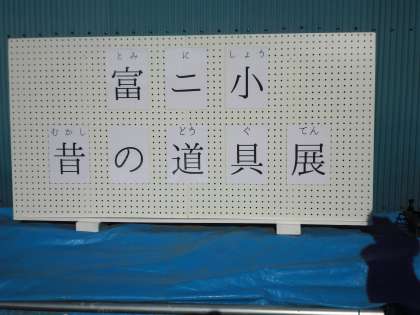 とみ に しょう
富二小
むかし どう ぐ てん
昔の道具展